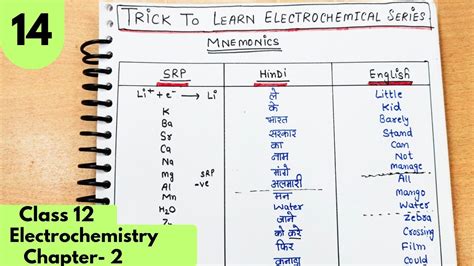 14
TRICK TO LEARN ELECTROCHEMICAL SERIES
MNEMONICS
SRP Hindi English
Li⁺ + e⁻ → Li ले Little
K के Kid
Ba भारत Barely
Sr सरकार Stand
Ca का Can
Na नाम Not
Mg SRP मांगे manage
Al -ve अलमारी All
Mn मन mango
H₂O Water Water
जाने Zebra
को करे Crossing
फिर Film
कनाडा Could
Class 12
Electrochemistry
Chapter- 2